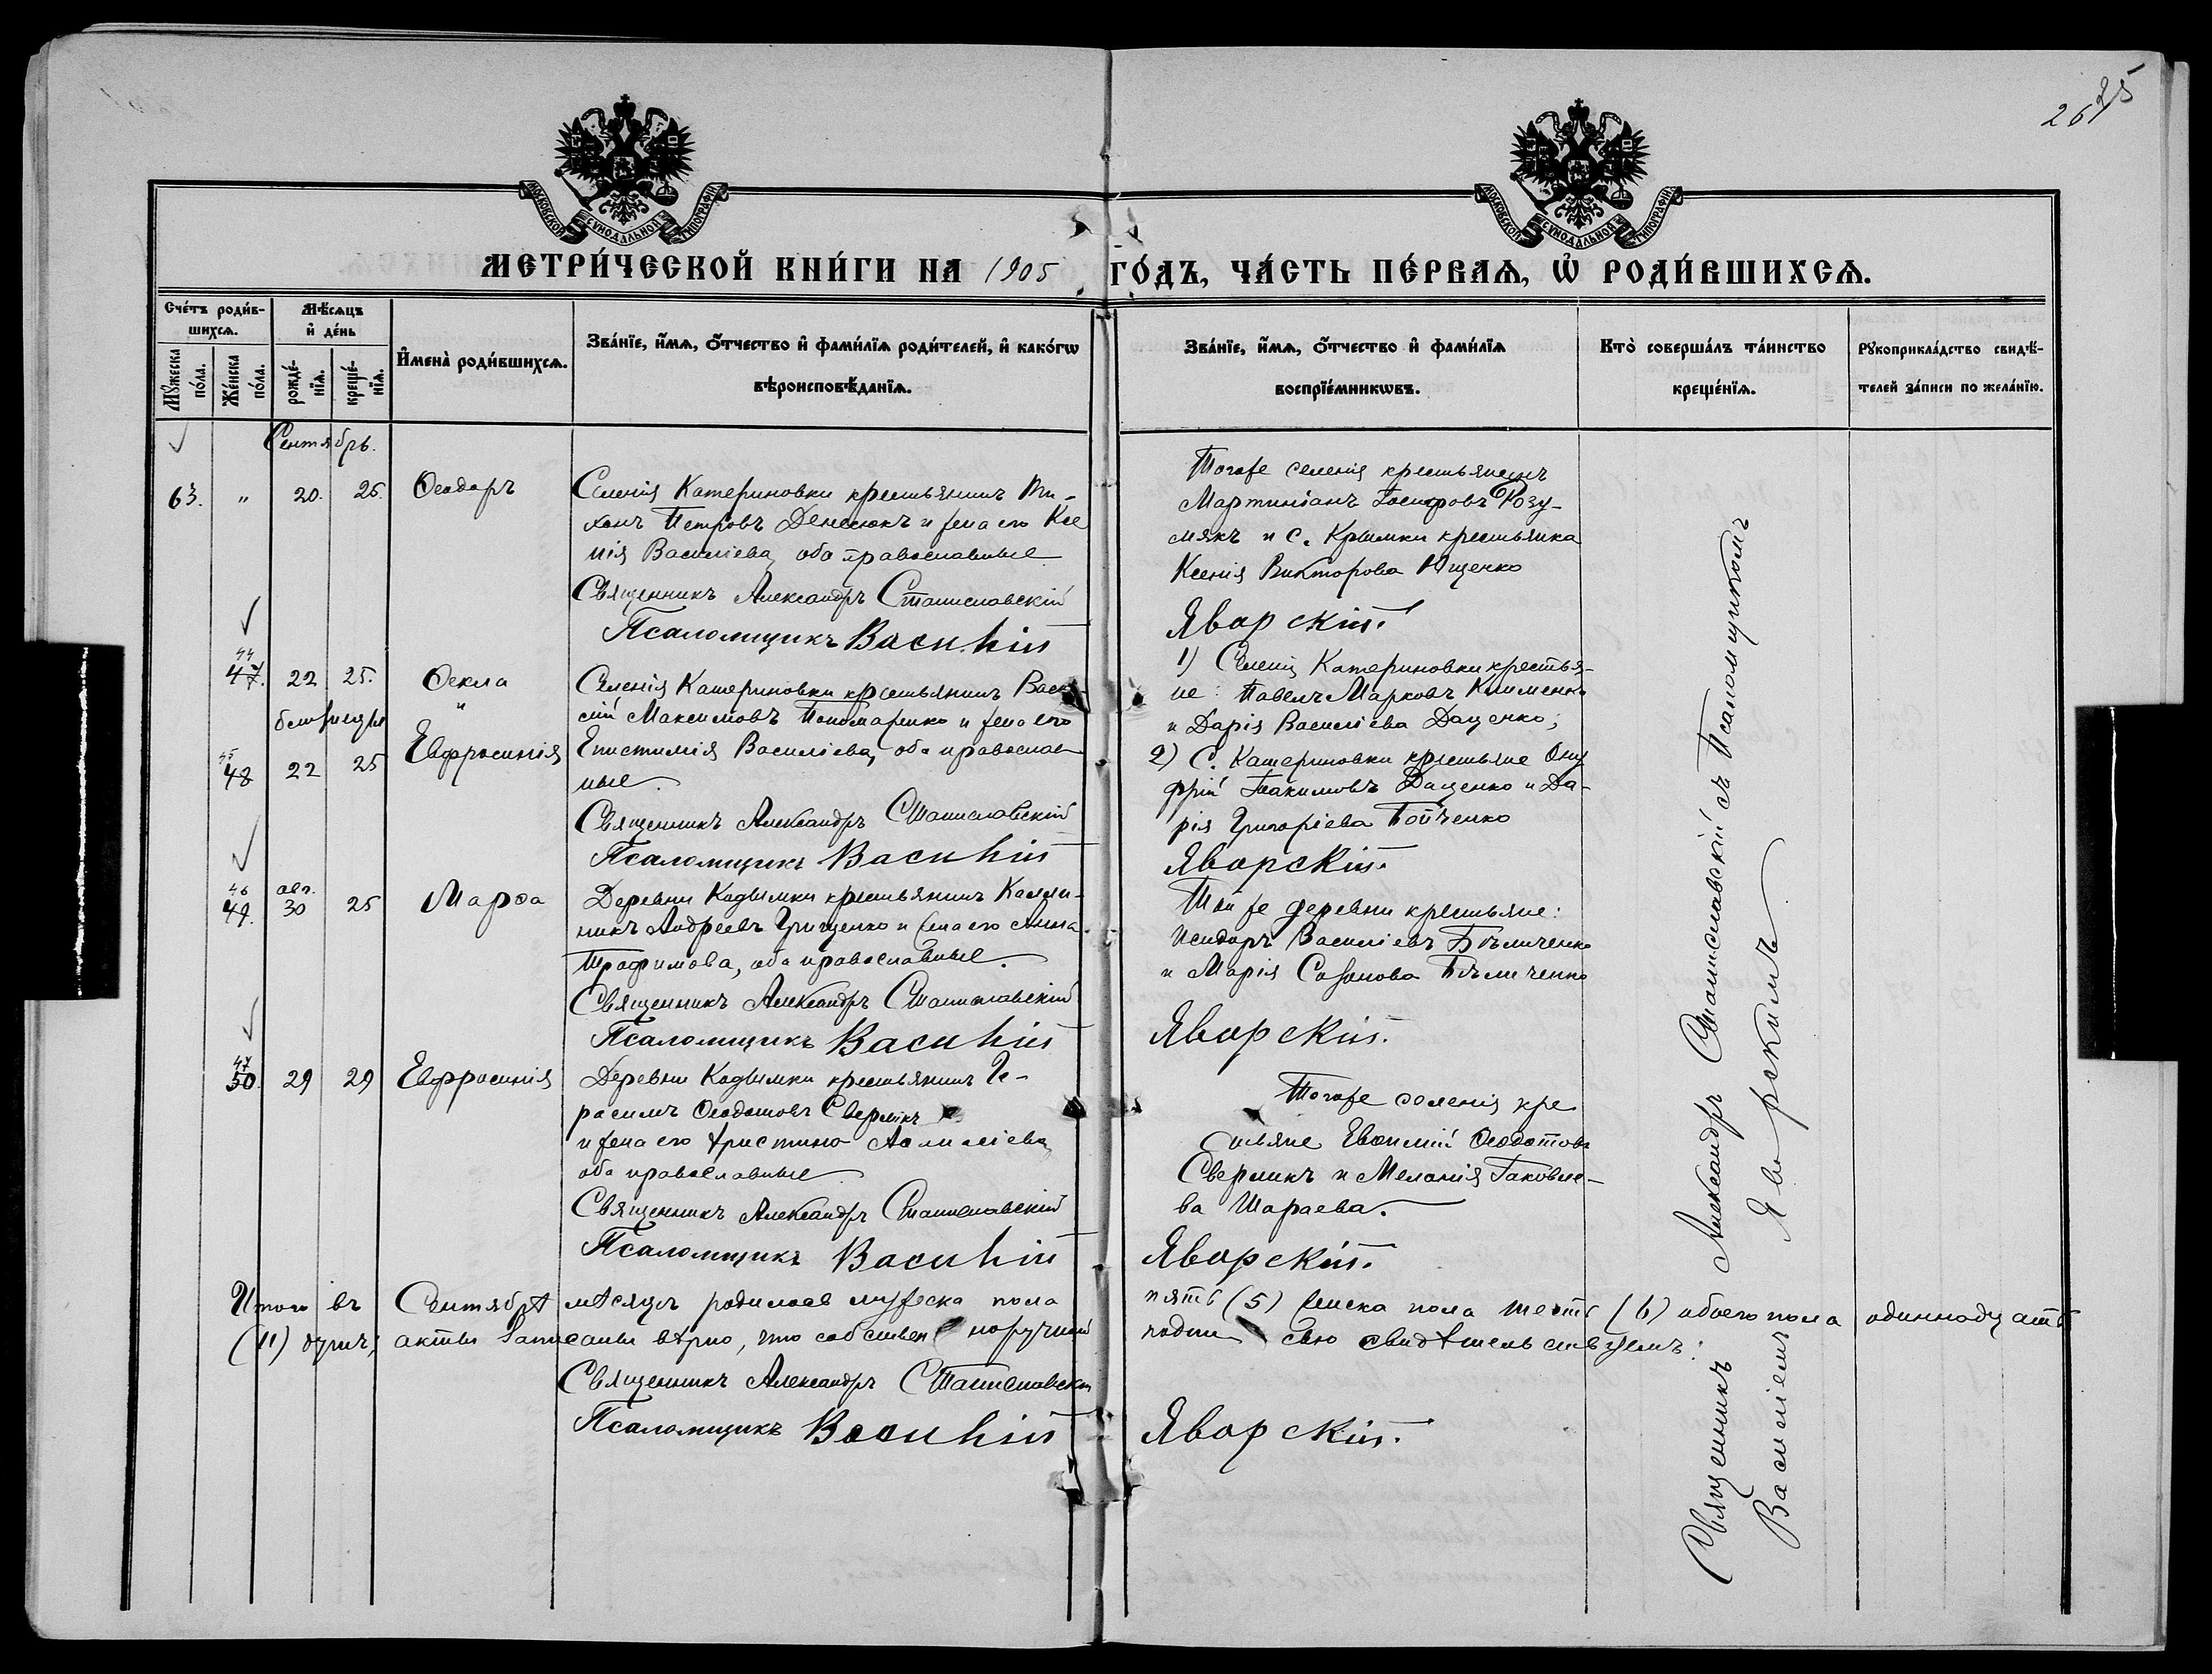 26 75
МОСКОВСКОЙ СѴНОДАЛЬНОЙ ТИПОГРАФІИ
МОСКОВСКОЙ СѴНОДАЛЬНОЙ ТИПОГРАФІИ
МЕТРИ́ЧЕСКОЙ КНИ́ГИ НА 1905 ГО́ДЪ, ЧА́СТЬ ПЕ́РВАѦ, Ѡ РОДИ́ВШИХСѦ.
Сче́тъ роди́в-
шихсѧ.
Мꙋжеска по́ла.
Же́нска по́ла.
Мѣ́сѧцъ
и҆ де́нь
рожде́-
нїѧ.
креще́-
нїѧ.
И҆мена̀ роди́вшихсѧ.
Зва́нїе, и҆́мѧ, о҆́тчество и҆ фами́лїѧ роди́телей, и҆ како́гѡ
вѣроисповѣ́данїѧ.
Зва́нїе, и҆́мѧ, о҆́тчество и҆ фами́лїѧ
воспрїе́мникѡвъ.
Кто̀ соверша́лъ та́инство
креще́нїѧ.
Рꙋкоприкла́дство свидѣ́-
телей за́писи по жела́нїю.
Сентябрь.
63. " 20. 25. Ѳеодоръ
Селенія Катериновки крестьянинъ Ти-
хонъ Петровъ Денесюкъ и жена его Ксе
нія Василіева, оба православные.
Священникъ Александръ Станиславскій
Псаломщикъ Василій
Тогоже селенія крестьянинъ
Мартиніанъ Іосифовъ Розу-
мякъ и с. Крымки крестьянка
Ксенія Викторова Ющенко
Яворскій.
44
47. 22 25. Ѳекла
"
близнецы
45
48 22 25 Евфросинія
Селенія Катериновки крестьянинъ Васи-
лій Максимовъ Пономаренко и жена его
Епистимія Василіева, оба православ
ные.
Священникъ Александръ Станиславскій
Псаломщикъ Василій
1) Селенія Катериновки крестья-
не: Павелъ Марковъ Клименко
и Дарія Василіева Даценко;
2) С. Катериновки крестьяне Ону
фрій Іоакимовъ Даценко и Да-
рія Григоріева Бойченко
Яворскій.
46
49. авг. 30 25 Марѳа
Деревни Кадымки крестьянинъ Калли-
никъ Андреевъ Грищенко и жена его Анна
Трофимова, оба православные.
Священникъ Александръ Станиславскій
Псаломщикъ Василій
Той же деревни крестьяне:
Исидоръ Василіевъ Бѣличенко
и Марія Созонова Бѣличенко
Яворскій.
47
50. 29 29 Евфросинія
Деревни Кадымки крестьянинъ Ге-
расимъ Ѳеодотовъ Сверликъ
и жена его Христина
оба православные.
Священникъ Александръ Станиславскій
Псаломщикъ Василій
Тогоже селенія кре
стьяне Евѳимій Ѳеодотовъ
Сверликъ и Меланія Іаковле-
ва Шараева.
Яворскій.
Итого въ Сентябрѣ мѣсяцѣ родилось мужеска пола пять (5) женска пола шесть (6) обоего пола одиннадцать
(11) душъ; акты записаны вѣрно, что собственноручной подписью свидѣтельствуемъ:
Священникъ Александръ Станиславскій
Псаломщикъ Василій Яворскій.
Священникъ Александръ Станиславскій съ Псаломщикомъ
Василіемъ Яворскимъ